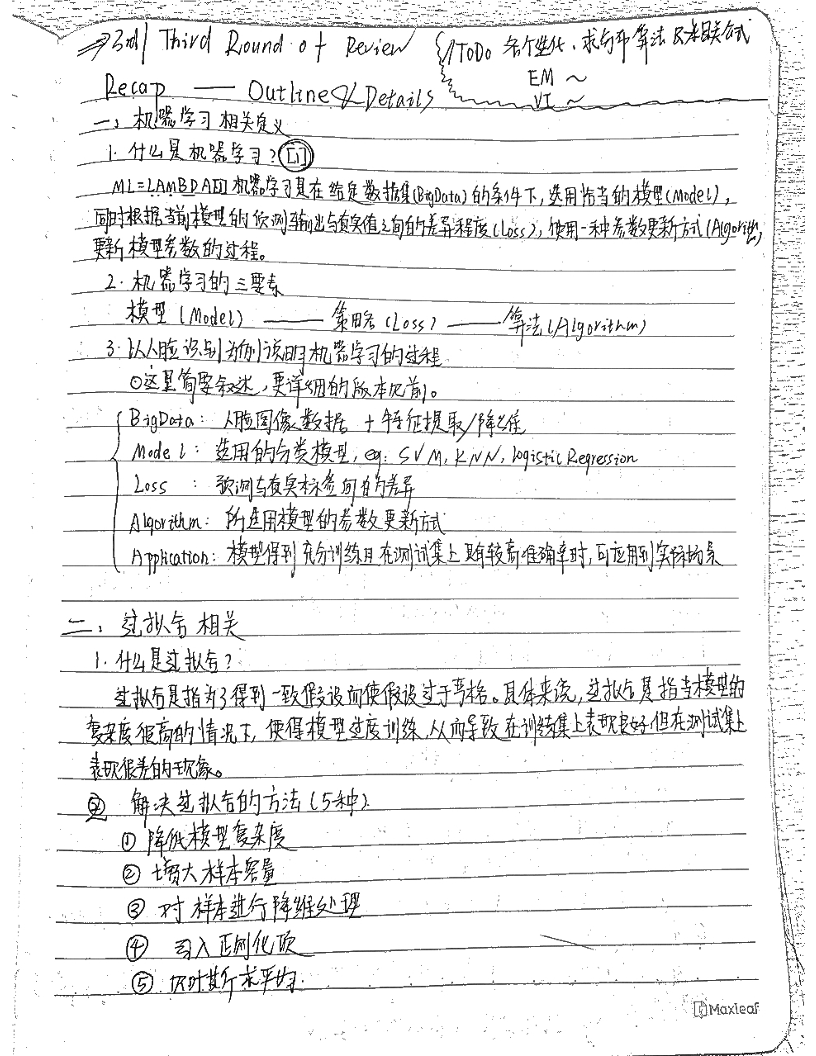 ⇒ 3rd Third Round of Review
//ToDo 各个性化、求与和算法及相关公式
EM ~
VI ~
Recap —— Outline & Details
一、机器学习相关定义
1. 什么是机器学习？
ML=LAMBDA 机器学习其在给定数据集(BigData)的条件下，选用恰当的模型(Model)，
同时根据当前模型的预测输出与真实值之间的差异程度(Loss)，使用一种参数更新方式(Algorithm)
更新模型参数的过程。
2. 机器学习的三要素
模型(Model) —— 策略(Loss) —— 算法(Algorithm)
3. 以人脸识别为例说明机器学习的过程
⊙这里简要叙述，更详细的版本见前。
BigData： 人脸图像数据 + 特征提取/降维
Model： 选用的分类模型，eg: SVM, KNN, Logistic Regression
Loss ： 预测与真实标签间的差异
Algorithm： 所选用模型的参数更新方式
Application： 模型得到充分训练且在测试集上具有较高准确率时，可应用到实际场景
二、过拟合相关
1. 什么是过拟合？
过拟合是指为了得到一致假设而使假设过于严格。具体来说，过拟合是指当模型的
复杂度很高的情况下，使得模型过度训练，从而导致在训练集上表现良好但在测试集上
表现很差的现象。
2. 解决过拟合的方法(5种)
① 降低模型复杂度
② 增大样本容量
③ 对样本进行降维处理
④ 引入正则化项
⑤ 求平均.
Maxleaf